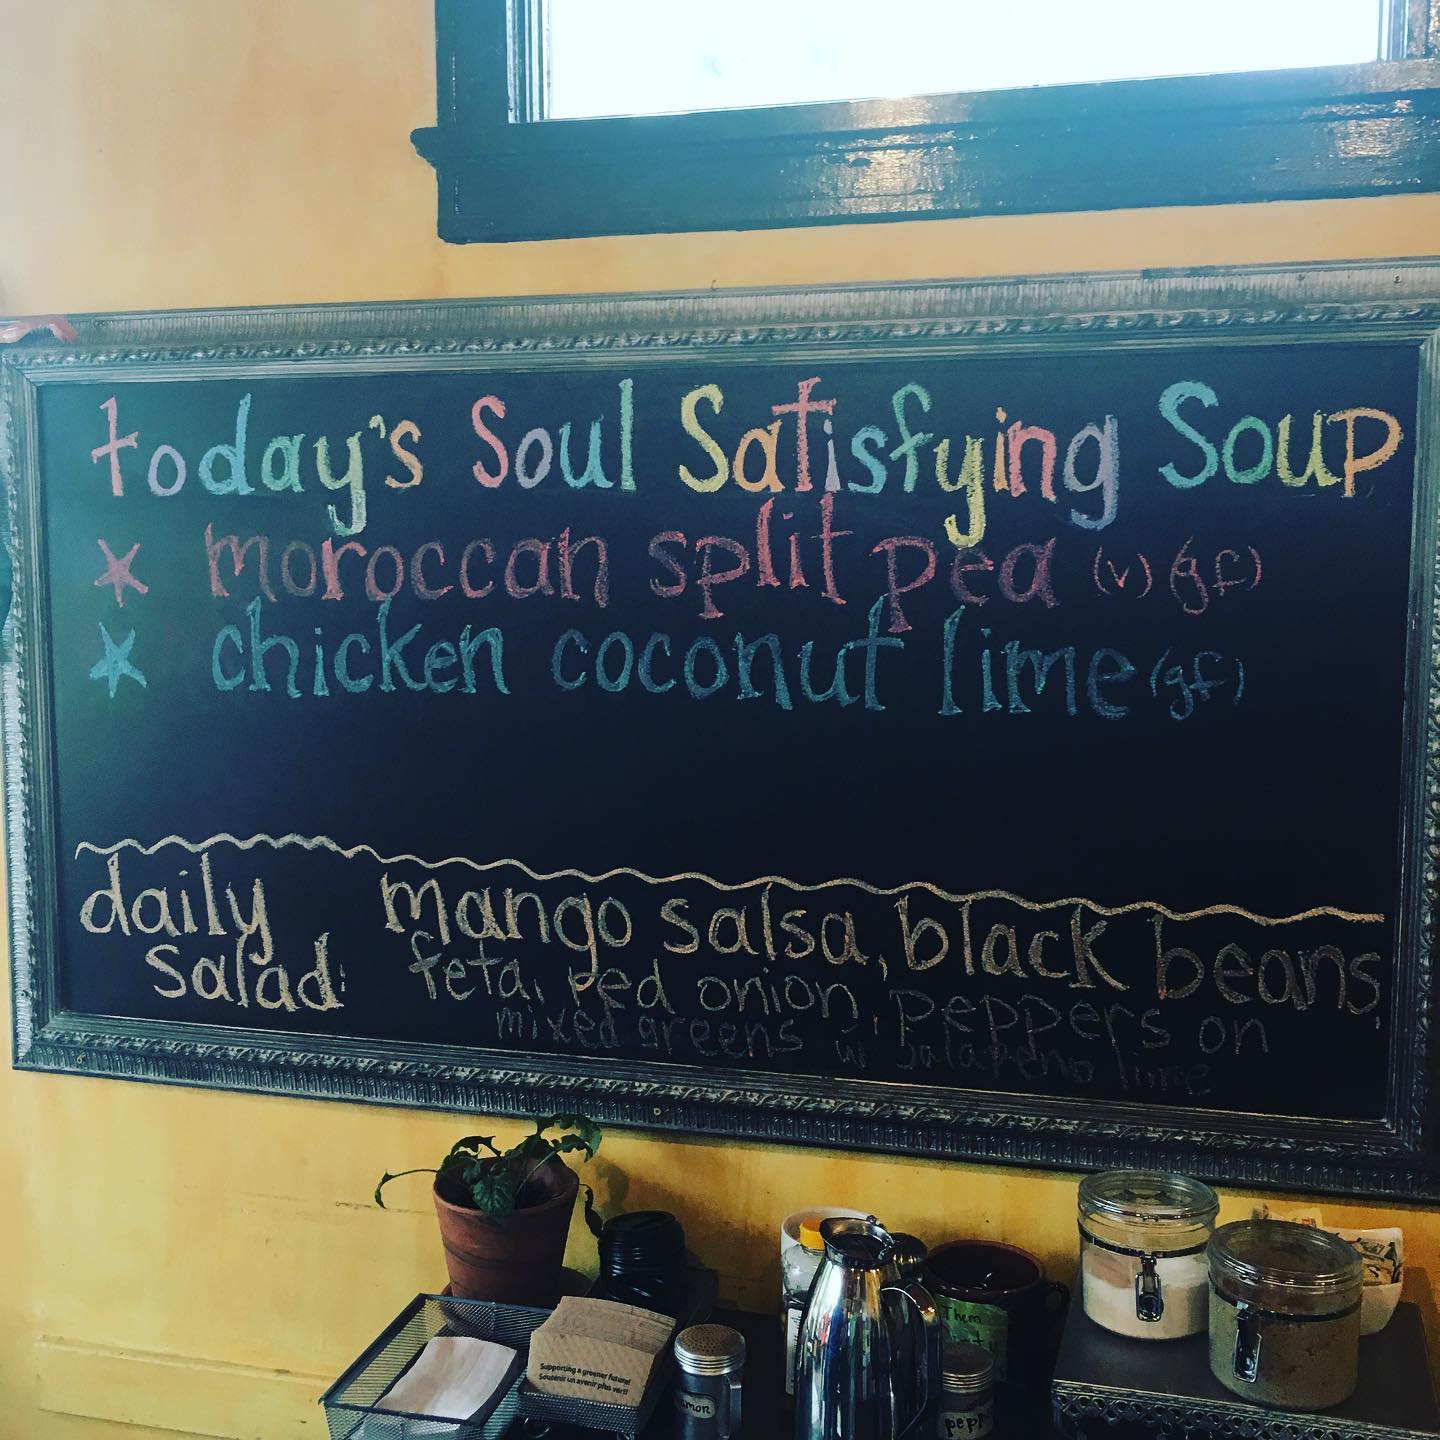 today's Soul Satisfying Soup
moroccan split pea (v) (gf)
chicken coconut lime (gf)
daily salad:
mango salsa, black beans,
feta, red onion, peppers on
mixed greens w jalapeno lime
Supporting a greener future!
Soutenir un avenir plus vert!